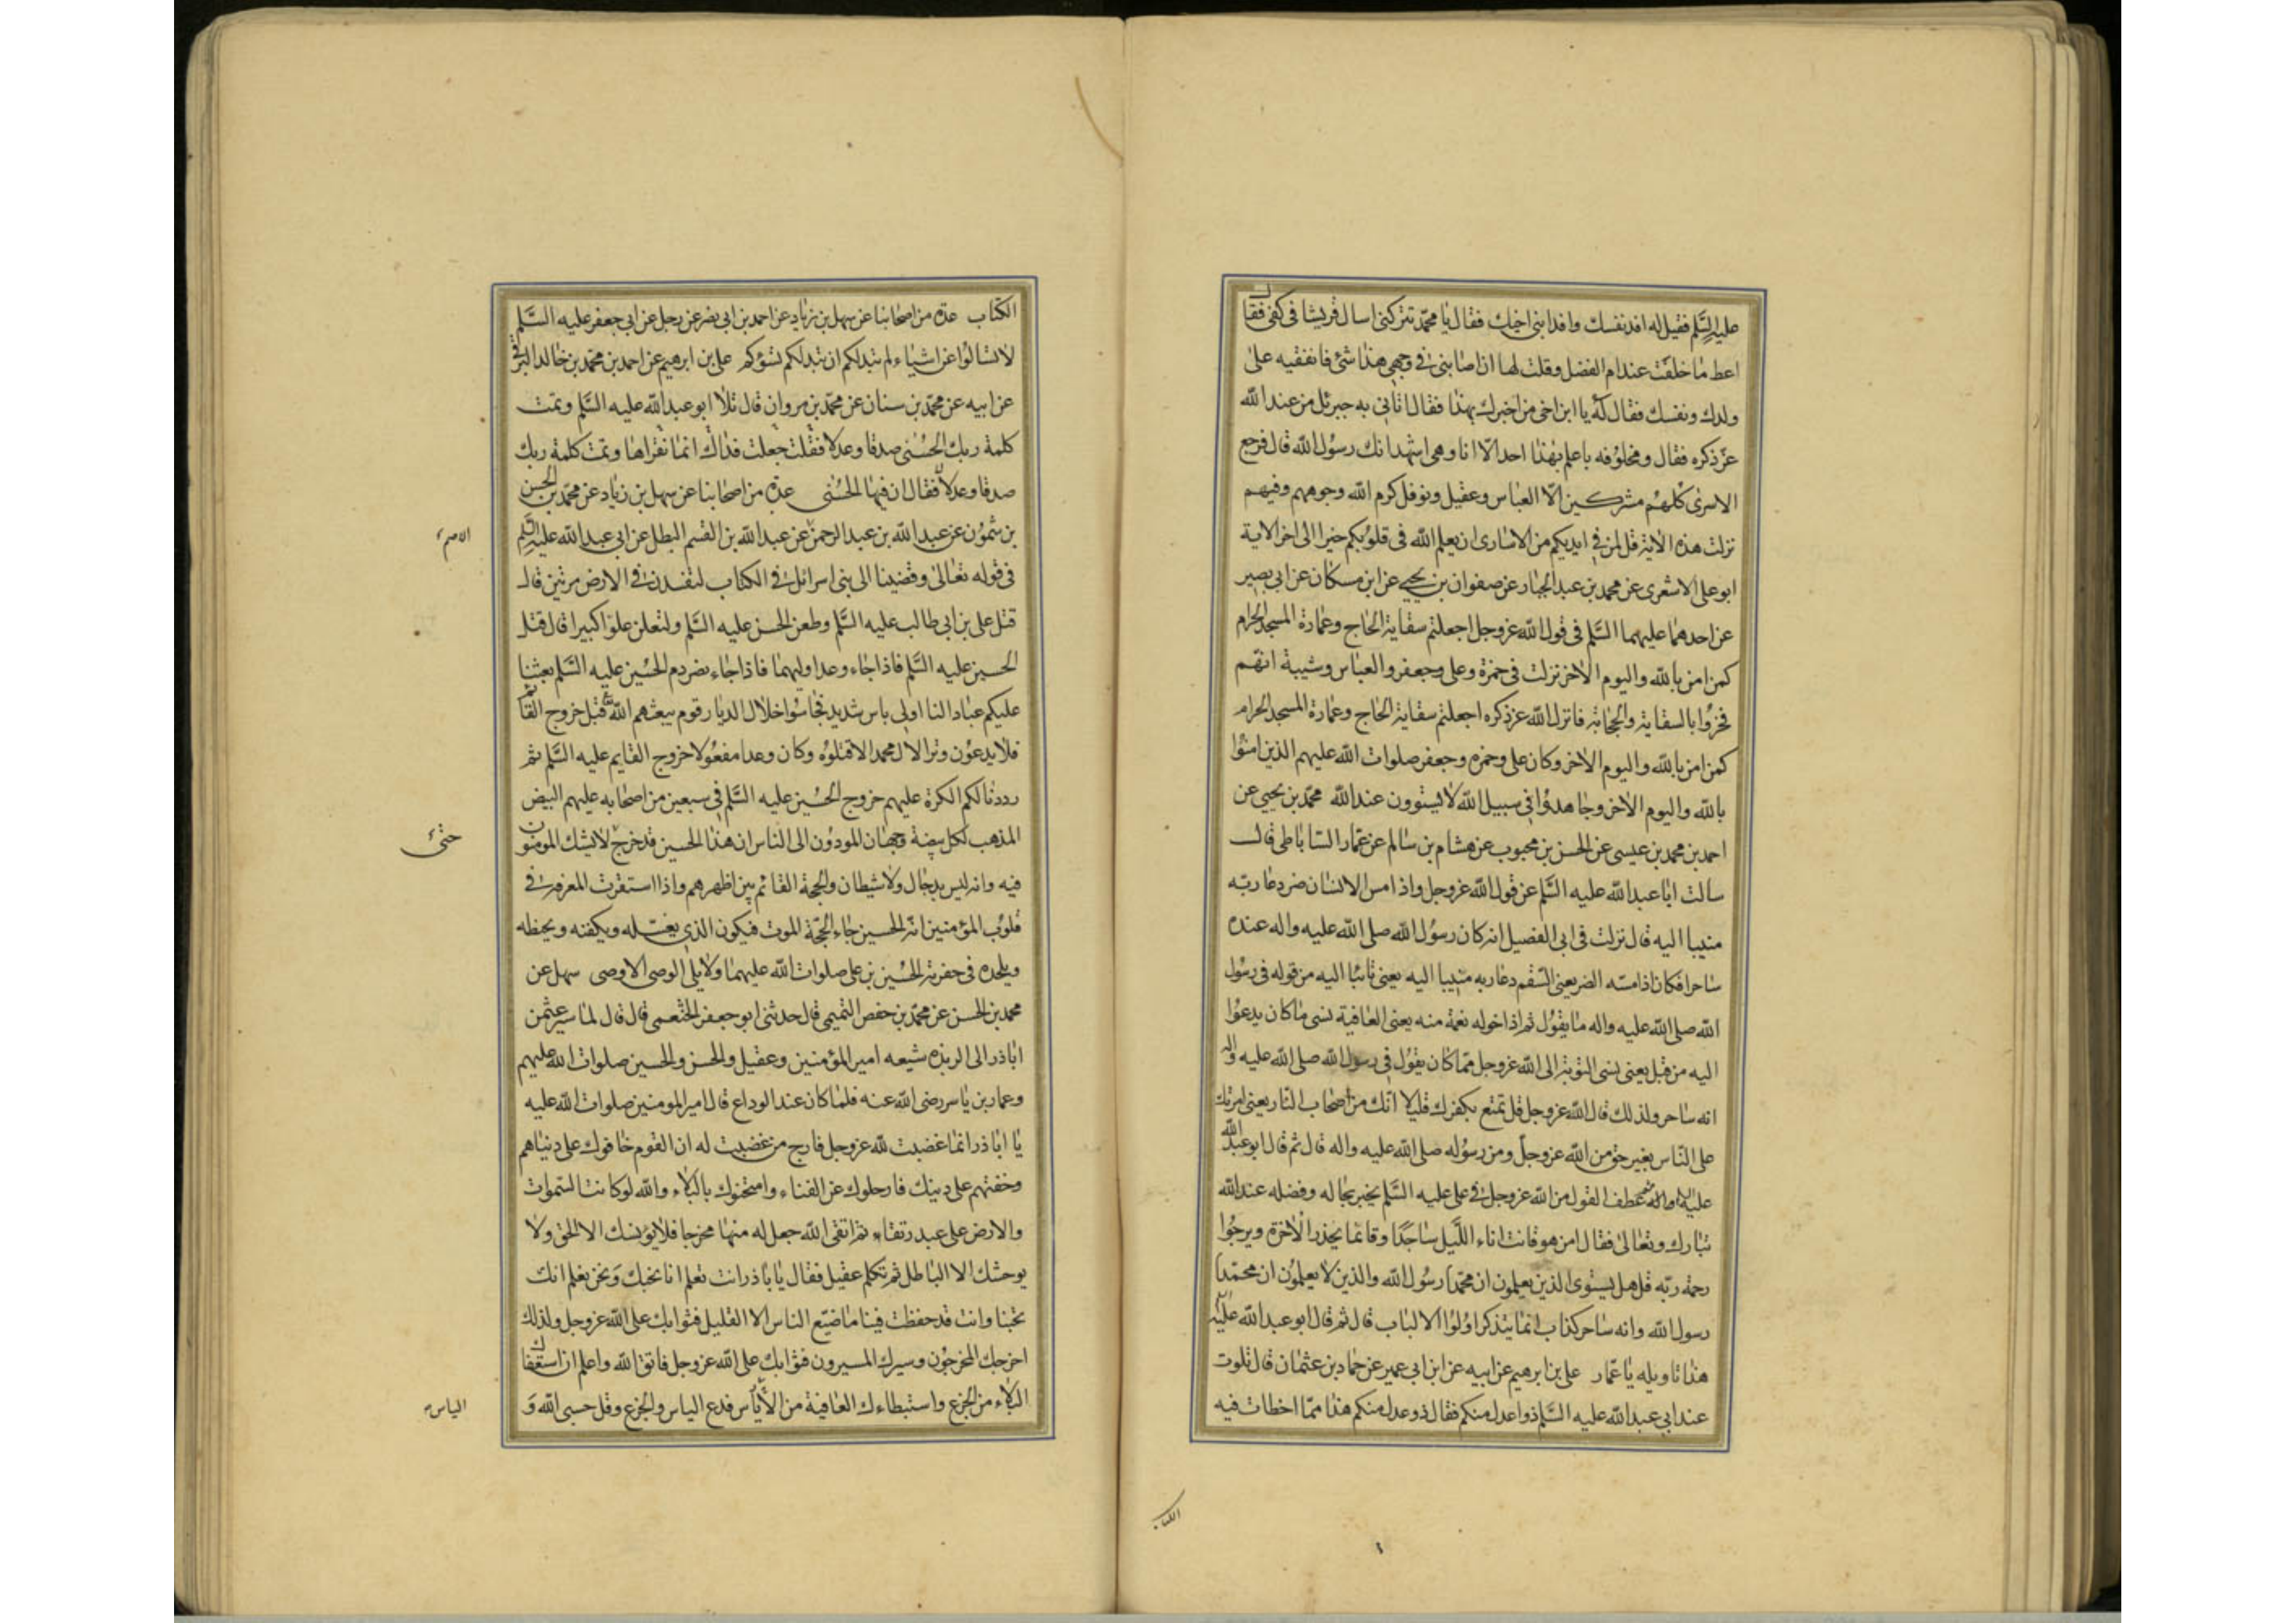 عليه السَّلم فقيل له افد نفسك وافد ابنى اخيك فقال يا محمّد تتركنى اسال قريشا فى كفى فقال
اعط ما خلفت عند ام الفضل وقلت لها ان اصابنى فى وجهى هذا شئ فانفقيه على
ولدك ونفسك فقال له يا ابن اخى من اخبرك بهذا فقال اتانى به جبرئل من عند الله
عزّ ذكره فقال ومحلوفه ما علم بهذا احد الا انا وهى اشهد انك رسول الله قال فرجع
الاسرى كلهم مشركين الّا العباس وعقيل ونوفل كرم الله وجوههم وفيهم
نزلت هذه الاية قل لمن فى ايديكم من الاسارى ان يعلم الله فى قلوبكم خيرا الى اخر الاية
ابو على الاشعرى عن محمد بن عبد الجبار عن صفوان بن يحيى عن ابن مسكان عن ابى بصير
عن احدهما عليهما السَّلم فى قول الله عز وجل اجعلتم سقاية الحاج وعمارة المسجد الحرام
كمن امن بالله واليوم الاخر نزلت فى حمزة وعلى وجعفر والعباس وشيبة انهم
فخروا بالسقاية والحجابة فانزل الله عز ذكره اجعلتم سقاية الحاج وعمارة المسجد الحرام
كمن امن بالله واليوم الاخر وكان على وحمزه وجعفر صلوات الله عليهم الذين امنوا
بالله واليوم الاخر وجاهدوا فى سبيل الله لا يستوون عند الله محمّد بن يحيى عن
احمد بن محمد بن عيسى عن الحسن بن محبوب عن هشام بن سالم عن عمّار الساباطى قال
سالت ابا عبد الله عليه السَّلم عن قول الله عز وجل واذا مس الانسان ضر دعا ربّه
منيبا اليه قال نزلت فى ابى الفصيل انه كان رسول الله صلى الله عليه واله عنده
ساحرا فكان اذا مسّه الضر يعنى السّقم دعا ربه منيبا اليه يعنى تائبا اليه من قوله فى رسول
الله صلى الله عليه واله ما يقول ثم اذا خوله نعمة منه يعنى العافية نسى ما كان يدعوا
اليه من قبل يعنى نسى التوبة الى الله عز وجل ممّا كان يقول فى رسول الله صلى الله عليه واله
انه ساحر ولذلك قال الله عز وجل قل تمتع بكفرك قليلا انّك من اصحاب النّار يعنى امرتك
على النّاس بغير حق من الله عز وجلّ ومن رسوله صلى الله عليه واله قال ثم قال ابو عبد الله
عليه ثم عطف القول من الله عز وجل فى على عليه السَّلم يخبر بحاله وفضله عند الله
تبارك وتعالى فقال امن هو قانت اناء اللّيل ساجدا وقائما يحذر الاخرة ويرجوا
رحمة ربّه قل هل يستوى الذين يعلمون ان محمّدا رسول الله والذين لا يعلمون ان محمّدا
رسول الله وانه ساحر كذاب انما يتذكر اولوا الالباب قال ثم قال ابو عبد الله عليه
هذا تاويله يا عمّار على بن ابرهيم عن ابيه عن ابن ابى عمير عن حماد بن عثمان قال تلوت
عند ابى عبد الله عليه السَّلم ذوا عدل منكم فقال ذو عدل منكم هذا ممّا اخطات فيه
الكتاب
الكتاب عدة من اصحابنا عن سهل بن زياد عن احمد بن ابى نصر عن رجل عن ابى جعفر عليه السَّلم
لا تسالوا عن اشياء لم تبد لكم ان تبد لكم تسؤكم على بن ابرهيم عن احمد بن محمّد بن خالد البرقى
عن ابيه عن محمّد بن سنان عن محمّد بن مروان قال تلا ابو عبد الله عليه السَّلم وتمت
كلمة ربك الحسنى صدقا وعدلا فقلت جعلت فداك انما نقراها وتمت كلمة ربك
صدقا وعدلا فقال ان فيها الحسنى عدة من اصحابنا عن سهل بن زياد عن محمّد بن الحسن
بن شمون عن عبد الله بن عبد الرحمن عن عبد الله بن القسم البطل عن ابى عبد الله عليه السَّلم
الاصم
فى قوله تعالى وقضينا الى بنى اسرائل فى الكتاب لتفسدن فى الارض مرتين قال
قتل على بن ابى طالب عليه السَّلم وطعن الحسن عليه السَّلم ولتعلن علوا كبيرا قال قتل
الحسين عليه السَّلم فاذا جاء وعد اوليهما فاذا جاء نصر دم الحسين عليه السَّلم بعثنا
عليكم عبادا لنا اولى باس شديد فجاسوا خلال الديار قوم يبعثهم الله قبل خروج القائم
فلا يدعون وترا لال محمد الا قتلوه وكان وعدا مفعولا خروج القايم عليه السَّلم ثم
رددنا لكم الكرة عليهم خروج الحسين عليه السَّلم فى سبعين من اصحابه عليهم البيض
المذهب لكل بيضة وجهان المودون الى الناس ان هذا الحسين قد خرج لا يشك المومنون
حتى
فيه وانه ليس بدجال ولا شيطان والحجة القائم بين اظهرهم واذا استقرت المعرفة فى
قلوب المؤمنين انه الحسين جاء الحجّة الموت فيكون الذى يغسله ويكفنه ويحنطه
ويلحده فى حفرته الحسين بن على صلوات الله عليهما ولا يلى الوصى الا وصى سهل عن
محمد بن الحسن عن محمّد بن حفص التميمى قال حدثنى ابو جعفر الخثعمى قال قال لما سير عثمن
اباذر الى الربذه شيعه امير المؤمنين وعقيل والحسن والحسين صلوات الله عليهم
وعمار بن ياسر رضى الله عنه فلما كان عند الوداع قال امير المومنين صلوات الله عليه
يا اباذر انما غضبت لله عز وجل فارج من غضبت له ان القوم خافوك على دنياهم
وخفتهم على دينك فارحلوك عن الفناء وامتحنوك بالبلاء والله لو كانت السموات
والارض على عبد رتقا ثم اتقى الله جعل له منها مخرجا فلا يؤنسك الا الحق ولا
يوحشك الا الباطل ثم تكلم عقيل فقال يا باذر انت تعلم انا نحبك ونحن نعلم انك
تحبنا وانت قد حفظت فينا ما ضيّع الناس الا القليل فثوابك على الله عز وجل ولذلك
اخرجك المخرجون وسيرك المسيرون فثوابك على الله عز وجل فاتق الله واعلم ان استعفاك
البلاء من الجزع واستبطاءك العافية من الاياس فدع الياس والجزع وقل حسبى الله و
الياس